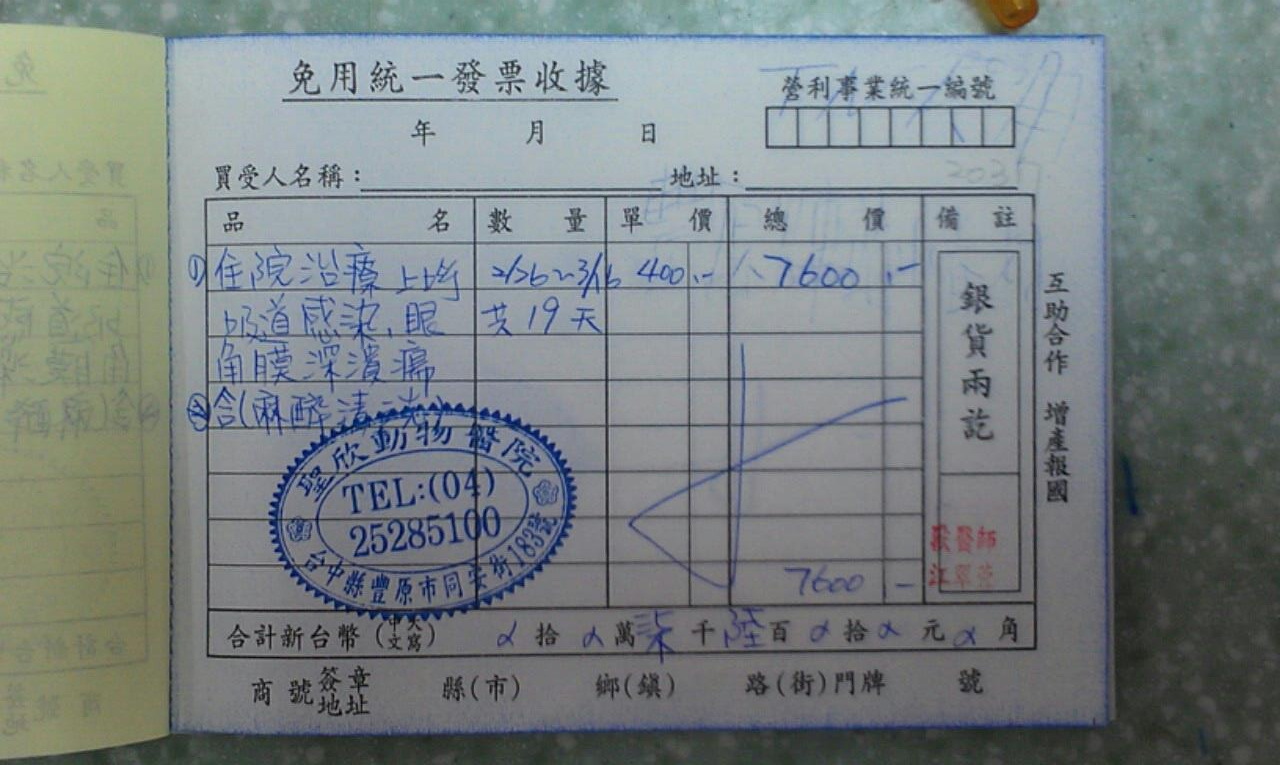 免用統一發票收據
營利事業統一編號
年 月 日
買受人名稱： 地址：
品名 數量 單價 總價 備註
①住院治療 上呼 2/26~3/16 400.- 7600.-
吸道感染、眼 共19天
角膜深潰瘍
②含(麻醉清洗)
銀貨兩訖
互助合作 增產報國
聖欣動物醫院
TEL:(04)
25285100
台中縣豐原市同安街183號
獸醫師
江翠
7600 -
合計新台幣(中文大寫) 拾 萬 柒 千 陸 百 拾 元 角
商號簽章地址 縣(市) 鄉(鎮) 路(街)門牌 號